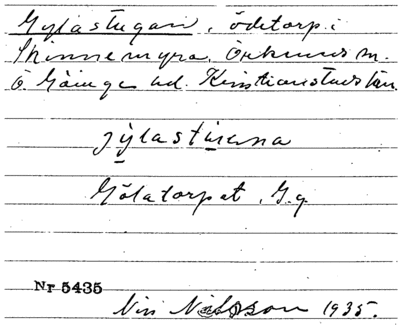 Gylastugan, ödetorp i
Skinnemyra. Örkeneds sn.
Ö Göinge hd. Kristianstads län.
jylastuena
Gölatorpet, G.g
Nr 5435
Nils Nilsson 1935.